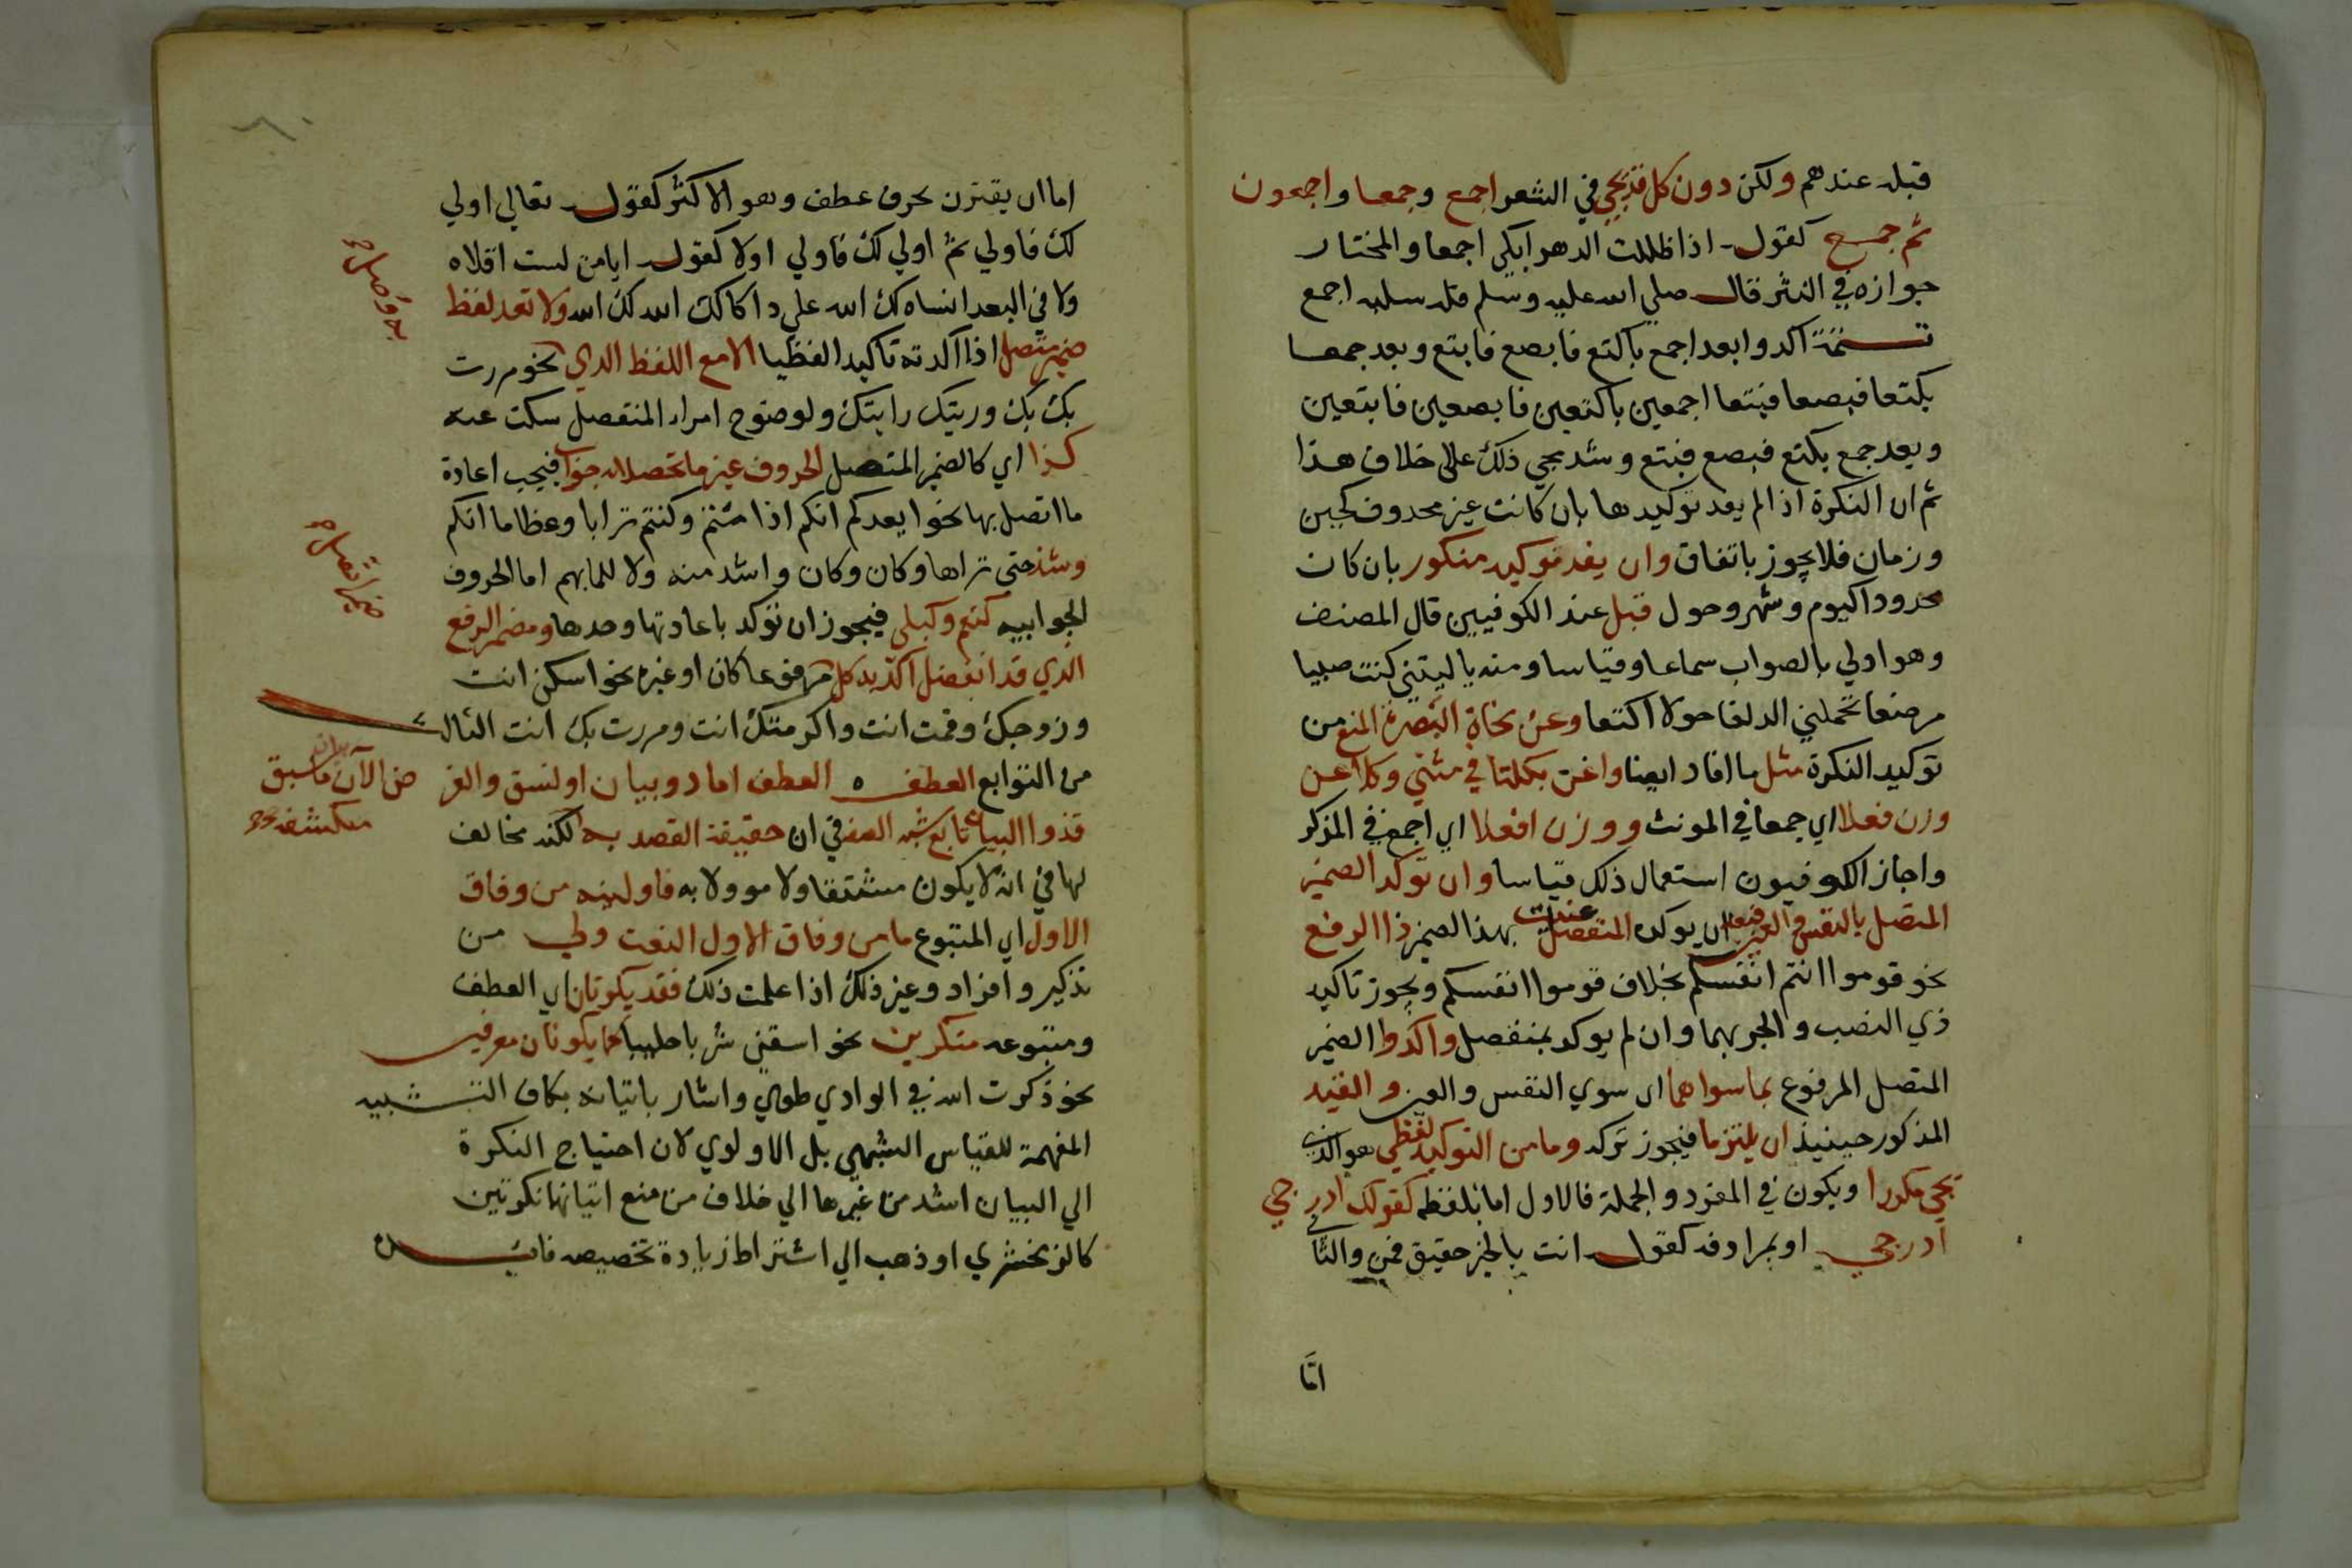 قبله عندهم ولكن دون كل قد يجي في الشعر اجمع وجمعا واجمعون
ثم جمع كقوله اذا ظللت الدهر ابكي اجمعا والمختار
جوازه في النثر قال صلي الله عليه وسلم فله سلبه اجمع
تتمة اكدوا بعد اجمع باكتع فابصع فابتع وبعد جمعا
بكتعا فبصعا فبتعا اجمعين باكتعين فابصعين فابتعين
وبعد جمع بكتع فبصع فبتع وشد مجي ذلك على خلاف هذا
ثم ان النكرة اذا لم يفد توكيدها بان كانت غير محدود كحين
وزمان فلا يجوز باتفاق وان يفد توكيد منكور بان كان
محدودا كيوم وشهر وحول قبل عند الكوفيين قال المصنف
وهو اولي بالصواب سماعا وقياسا ومنه يا ليتني كنت صبيا
مرضعا تحملني الدلفا حولا اكتعا وعن نحاة البصرة المنع من
توكيد النكرة مثل ما افاد ايضا واغن بكلتا في مثني وكلا عن
وزن فعلا اي جمعا في المونث ووزن افعلا اي اجمع في المذكر
واجاز الكوفيون استعمال ذلك قياسا وان توكد الضمير
المتصل بالنفس والعين فبعد ان يوكد المنفصل عنيت بهذا الضمير ذا الرفع
نحو قوموا انتم انفسكم بخلاف قوموا انفسكم ويجوز تاكيد
ذي النصب والجر بهما وان لم يوكد بمنفصل واكدوا الضمير
المتصل المرفوع بما سواهما اي سوي النفس والعين والقيد
المذكور حينيذ ان يلتزما فيجوز تركه وما من التوكيد لفظي هو الذي
يجي مكررا ويكون في المفرد والجملة فالاول اما بلفظه كقولك ادرجي
ادرجي او بمرادفه كقوله انت بالخير حقيق قمن والثاني
اما
اما ان يقترن بحرف عطف وهو الاكثر كقوله تعالي اولي
لك فاولي ثم اولي لك فاولي اولا كقوله ايا من لست اقلاه
ولا في البعد انساه لك الله علي داكا لك الله لك الله ولا تعد لفظ
ضمير متصل اذا اكدته تاكيدا لفظيا الا مع اللفظ الدي نحو مررت
بك بك وريتك رايتك ولوضوح امر المنفصل سكت عنه
كذا اي كالضمير المتصل الحروف غير ما تحصلا به جواب فيجب اعادة
ما اتصل بها نحو ايعدكم انكم اذا متم وكنتم ترابا وعظاما انكم
وشذ حتي تراها وكان وكان واشد منه ولا للما بهم اما الحروف
الجوابيه كنعم وكبلي فيجوز ان توكد باعادتها وحدها ومضمر الرفع
الذي قد انفصل اكد به كل مرفوعا كان او غيره نحو اسكن انت
وزوجك وقمت انت واكرمتك انت ومررت بك انت الثالث
من التوابع العطف ه العطف اما ذو بيان او نسق والغر
فذو البيان تابع شبه الصفه في ان حقيقة القصد به لكنه مخالف
لها في انه لا يكون مشتقا ولا موولا به فاولينه من وفاق
الاول اي المتبوع ما من وفاق الاول النعت ولي من
تذكير وافراد وغير ذلك اذا علمت ذلك فقد يكونان اي العطف
ومتبوعه منكرين نحو اسقني شربا حليبا كما يكونان معرفين
نحو ذكرت الله في الوادي طوي واشار باتيانه بكاف التشبيه
المفهمة للقياس الشبهي بل الاولوي لان احتياج النكرة
الي البيان اشد من غيرها الي خلاف من منع اتيانهما نكرتين
كالزمخشري او ذهب الي اشتراط زيادة تخصيصه
ض الآن بيان ما سبق
منكشفه